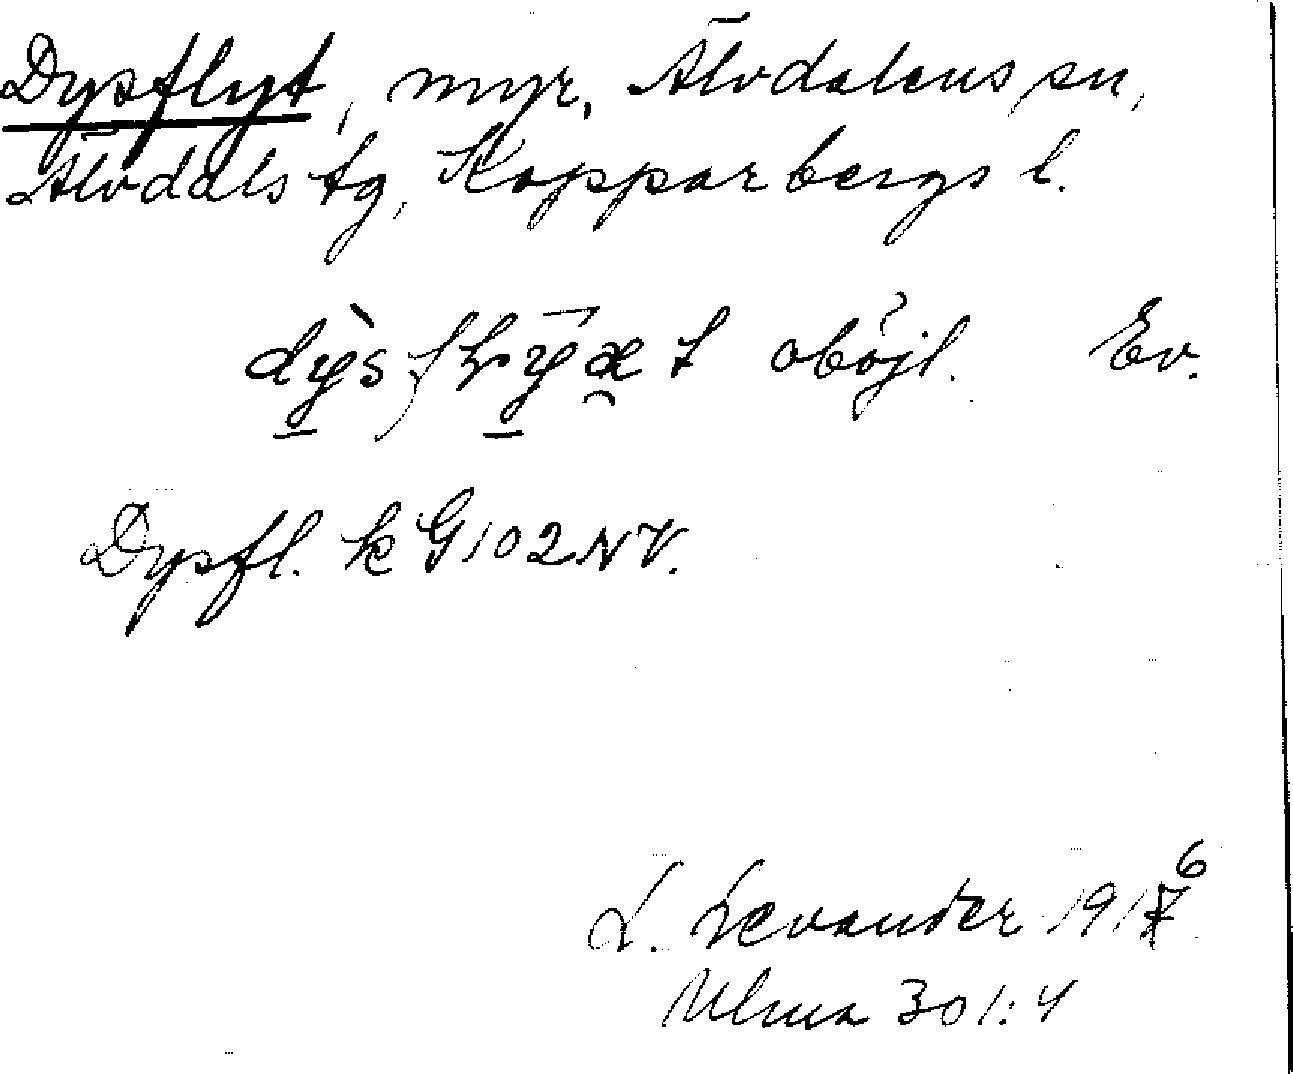 Dysflyt, myr, Älvdalens sn,
Älvdals tg, Kopparbergs l.
oböjl. Ev.
Dysfl. k G 102 NV.
L. Levander 1916
Ulma 301:4